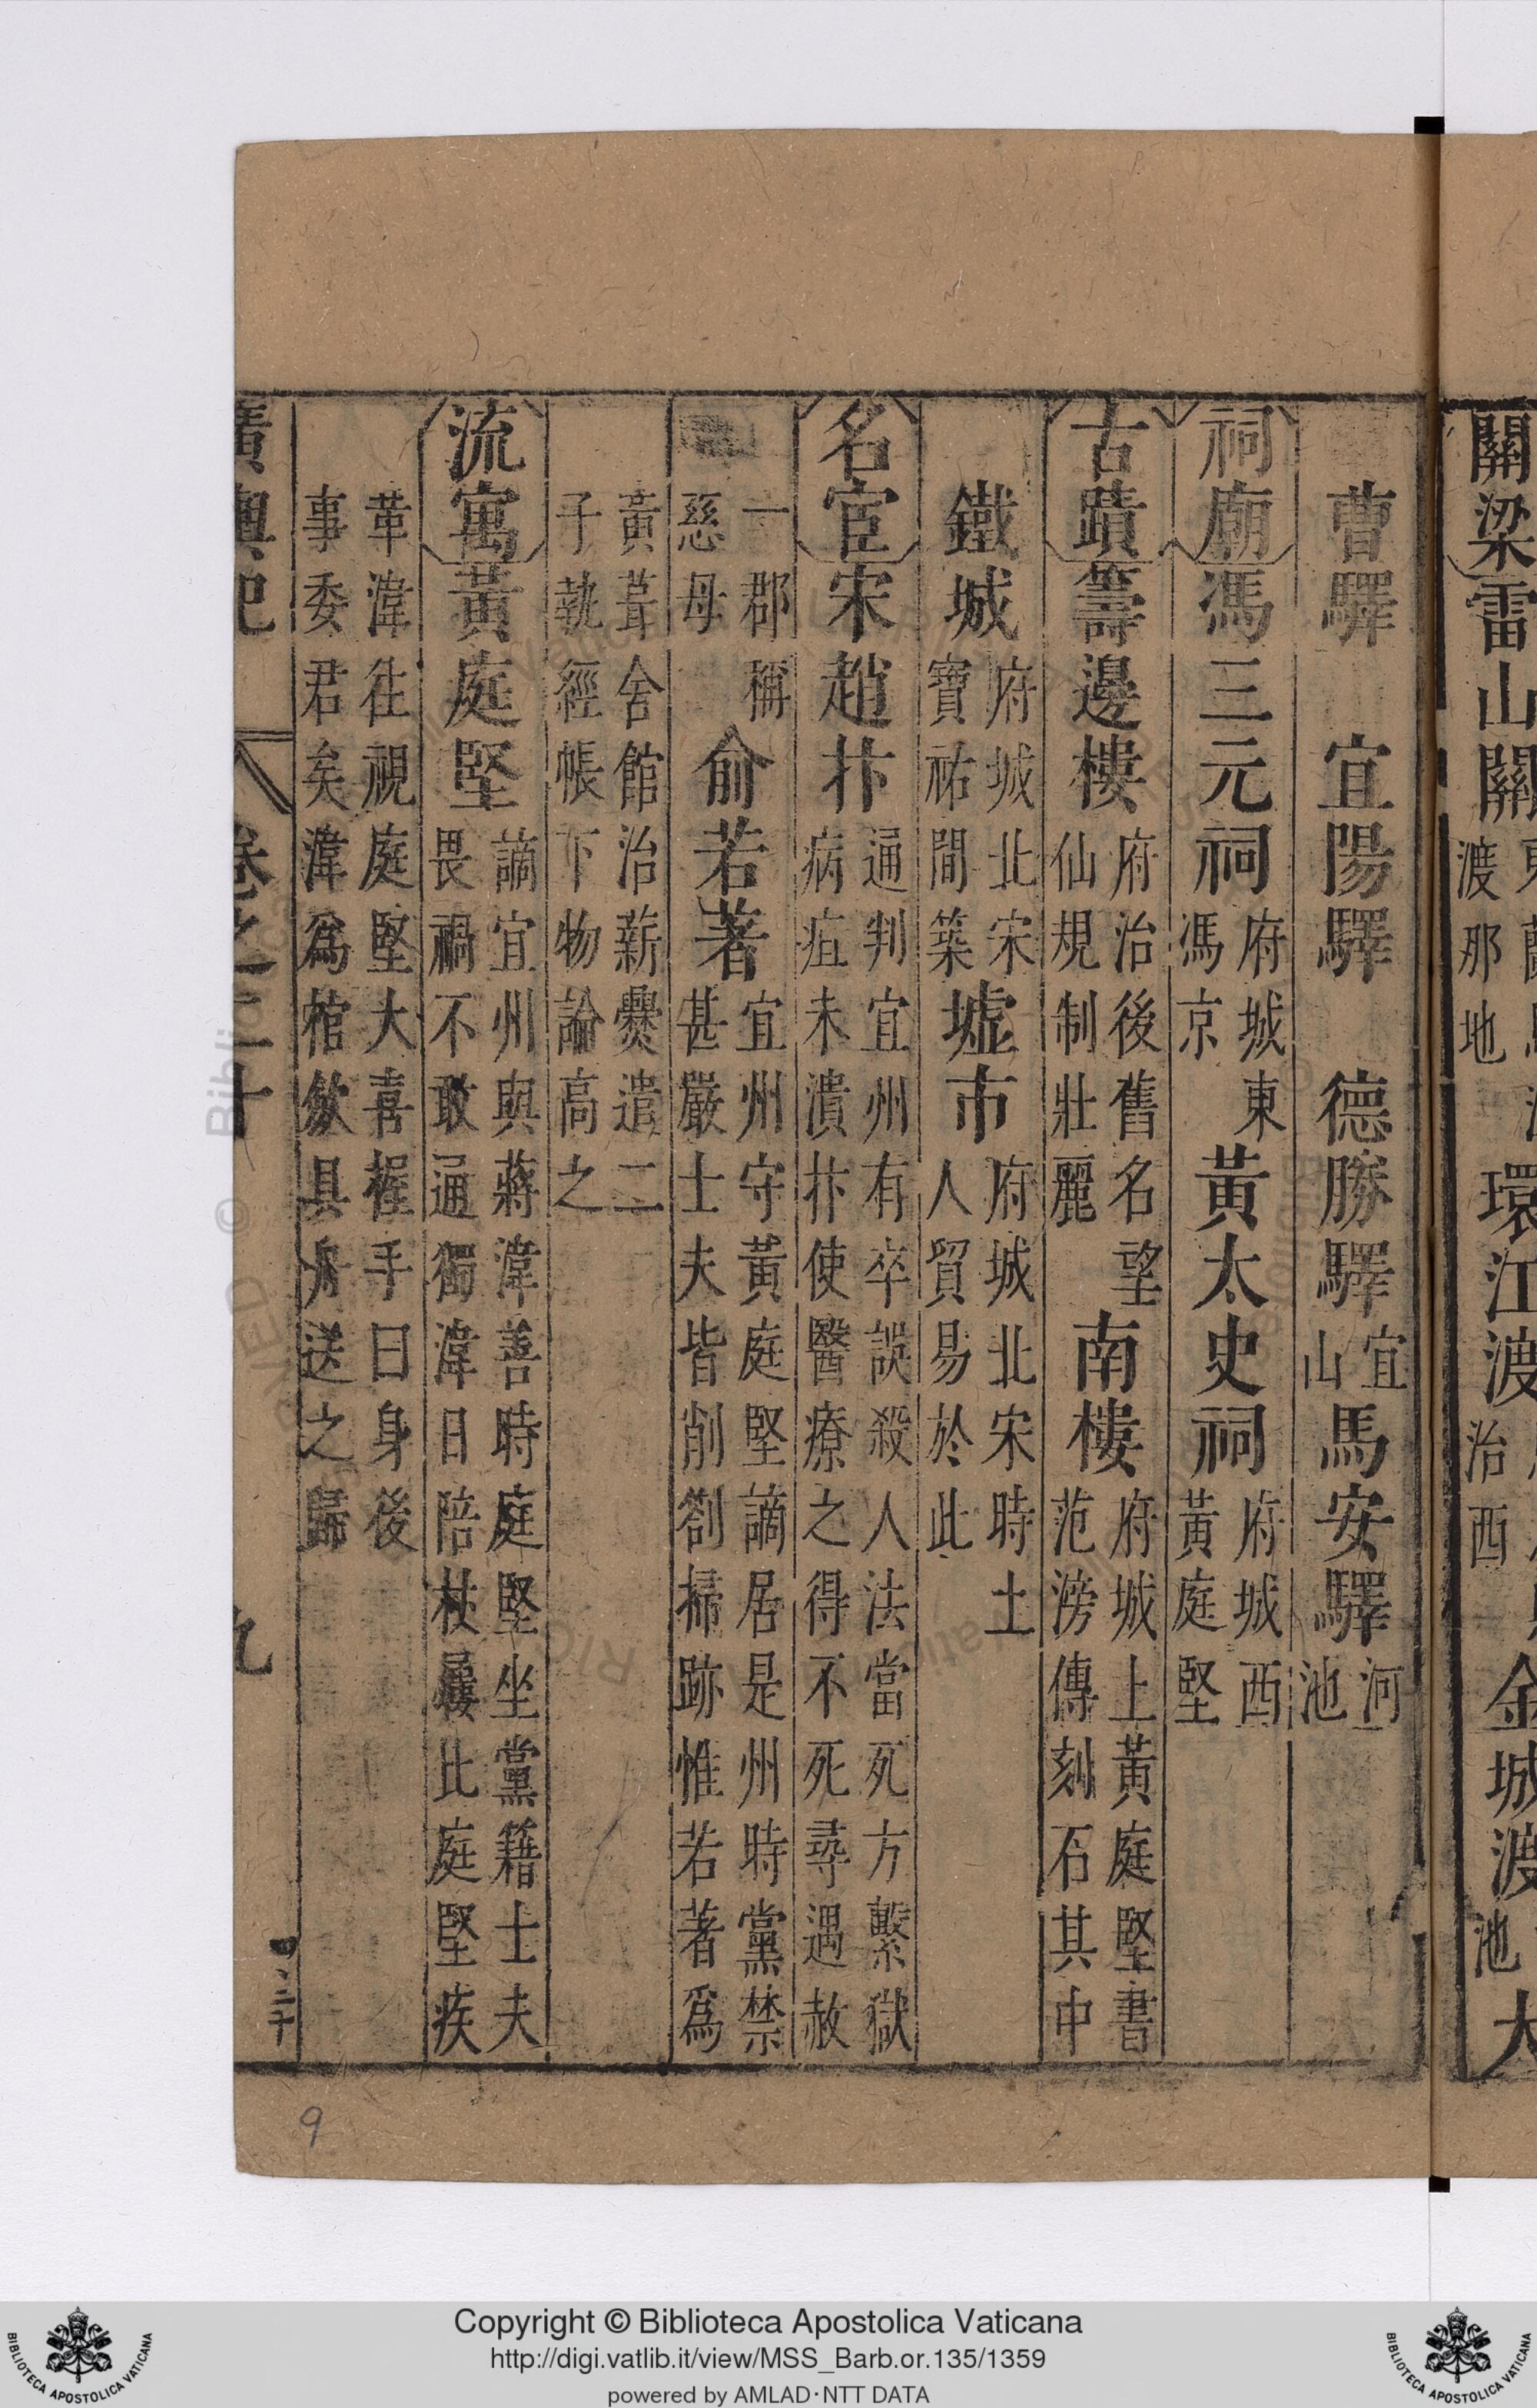 關梁雷山關渡那地環江渡治西金城渡池大
曹驛 宜陽驛 德勝驛宜山馬安驛河池
祠廟馮三元祠府城東馮京黃太史祠府城西黃庭堅
古蹟籌邊樓府治後舊名望仙規制壯麗南樓府城上黃庭堅書范滂傳刻石其中
鐵城府城北宋寶祐間築墟市府城北宋時土人貿易於此
名宦宋趙抃通判宜州有卒誤殺人法當死方繫獄病疽未潰抃使醫療之得不死尋遇赦
一郡稱慈母俞若著宜州守黃庭堅謫居是州時黨禁甚嚴士夫皆削劄掃跡惟若著爲
黃葺舍館治薪爨遣二子執經帳下物論高之
流寓黃庭堅謫宜州與蔣湋善時庭堅坐黨籍士夫畏禍不敢通獨湋日陪杖屨比庭堅疾
革湋往視庭堅大喜握手曰身後事委君矣湋爲棺斂具舟送之歸
廣輿記 卷之二十 九
9
Copyright © Biblioteca Apostolica Vaticana
http://digi.vatlib.it/view/MSS_Barb.or.135/1359
powered by AMLAD·NTT DATA
BIBLIOTECA APOSTOLICA VATICANA
BIBLIOTECA APOSTOLICA VATICANA